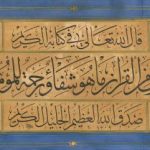 قال الله تعالى في كتابه الكريم
من القرآن ما هو شفاء ورحمة
صدق الله العظيم الجليل الكريم